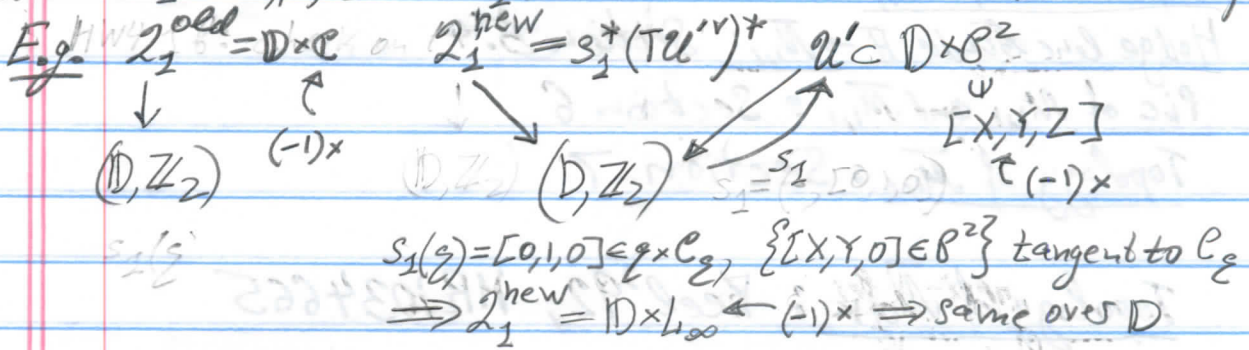 E.g. 𝓛₁^old = 𝔻×ℂ    𝓛₁^new = s₁*(T𝒰'^v)*    𝒰' ⊂ 𝔻×ℙ²
↓    ↑    ↘    ↙    ↗ s₁    [X,Y,Z]
(𝔻,ℤ₂)    (-1)×    (𝔻,ℤ₂)    ↑ (-1)×
s₁(q)=[0,1,0]∈q×C_q, {[X,Y,0]∈ℙ²} tangent to C_q
⟹ 𝓛₁^new = 𝔻×L_∞ ← (-1)× ⟹ same over 𝔻